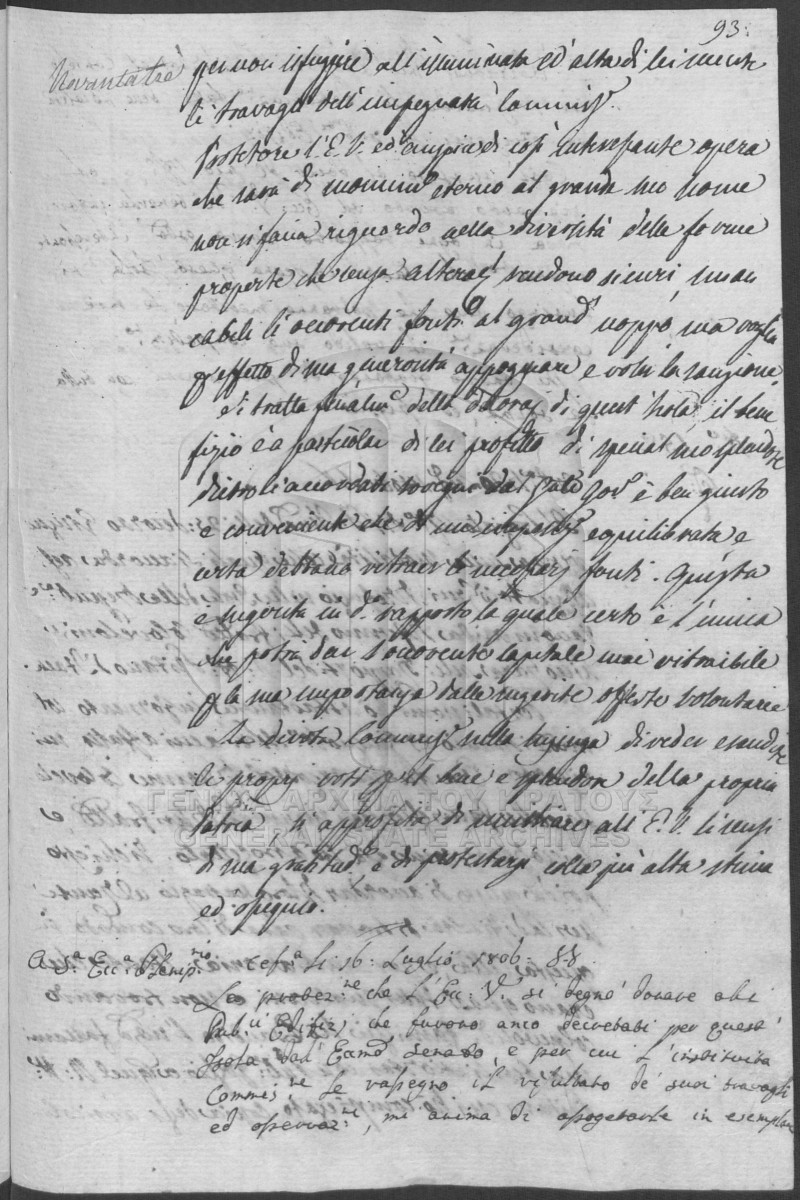 93:
Novantatrè
per non isfuggire all'illuminata ed alta di lei mente
li travagli dell'impegnata Commiss.e
Protetore l'E. V. ed auspice di così interessante opera
che sarà di monum.o eterno al grande suo nome
non si facia riguardo nella diversità delle forme
proposte che senza alteraz.i rendono sicuri, man
cabili li occorenti fonti al grand' uoppo, ma voglia
effetto di sua generosità appoggiare e voler la sanzione
Si tratta final.e della di quest' Isola, il bene
fizio è a particolar di lei profitto di special suo splendore
dietro li accordati dal Gov.o è ben giusto
e conveniente che di una equilibrata e
certa debbano ritraer li necessarj fonti. Questa
è sugerita in d.o rapporto la quale certo è l'unica
che potrà dar l'occorente Capitale mai ritraibile
la sua importanza dalle sugerite offerte volontarie
La divota Commiss.e nella lusinga di veder esaudire
li proprj voti pel bene e splendore della propria
Patria, si approfitta di umiliare all' E. V. li sensi
di sua gratitud.e, e di protestarsi colla più alta stima
ed ossequio.
A S.a Ecc.a Plenip.rio Cef.a li 16: Luglio 1806. S.V.
Le providez.ne che l'Ecc. V. si degnò donare alli
Pub.ci Edifizj che furono anco decretati per quest'
Isola dall' Ecc.mo Senato, e per cui l'instituita
Commis.ne Le rassegno il risultato de' suoi travagli
ed osservaz.ne, mi anima di assogetarle in esemplare
ΓΕΝΙΚΑ ΑΡΧΕΙΑ ΤΟΥ ΚΡΑΤΟΥΣ
GENERAL STATE ARCHIVES